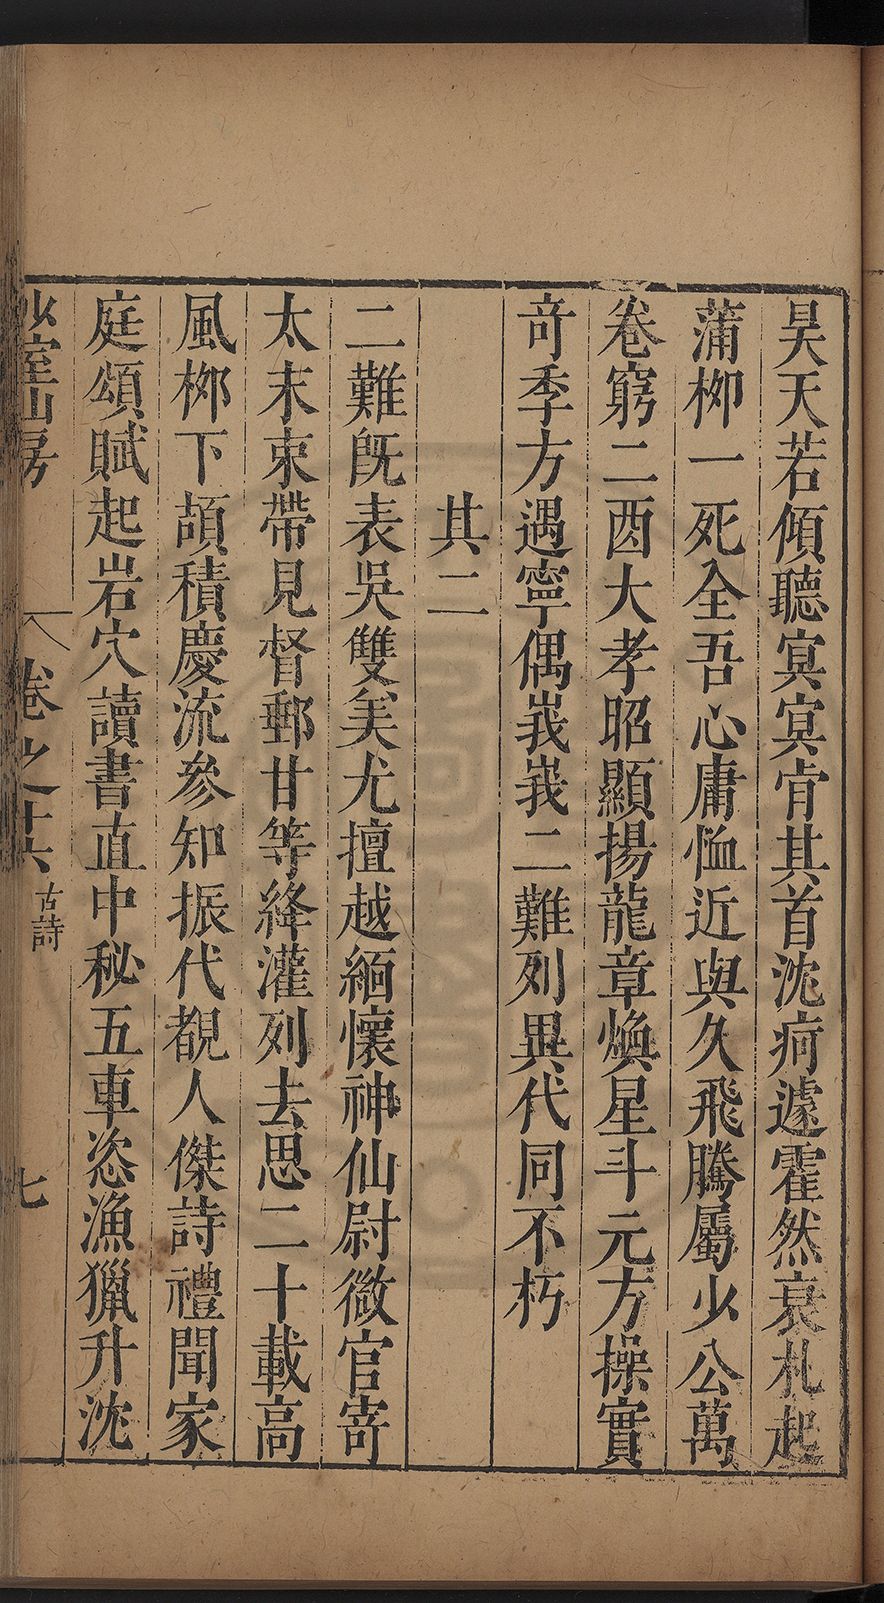 昊天若傾聽冥冥肯其首沈疴遽霍然衰札起
蒲桺一死全吾心庸恤近與久飛騰屬少公萬
卷窮二酉大孝昭顯揚龍章煥星斗元方操實
竒季方遇寧偶峩峩二難列異代同不朽
其二
二難旣表吳雙美尤擅越緬懷神仙尉微官寄
太末束帶見督郵甘等絳灌列去思二十載高
風桺下頡積慶流參知振代覩人傑詩禮聞家
庭頌賦起岩穴讀書直中秘五車恣漁獵升沈
少室山房
卷之十六
古詩
七